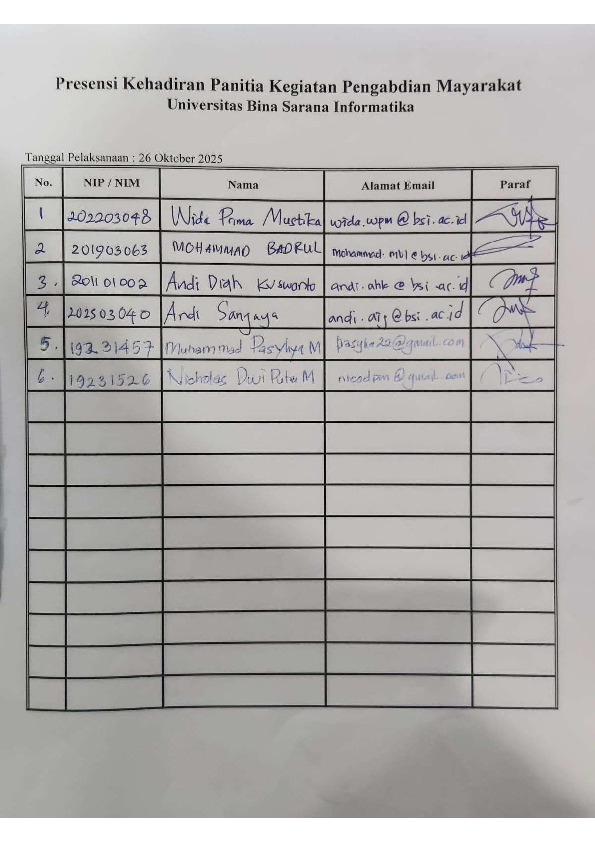 Presensi Kehadiran Panitia Kegiatan Pengabdian Mayarakat
Universitas Bina Sarana Informatika
Tanggal Pelaksanaan : 26 Oktober 2025
No. NIP / NIM Nama Alamat Email Paraf
1 202203048 Wida Prima Mustika wida.wpm@bsi.ac.id
2 201903063 MOHAMMAD BADRUL mohammad.mbl@bsi.ac.id
3. 201101002 Andi Diah Kuswanto andi.ahk@bsi.ac.id
4. 202503040 Andi Sanjaya andi.aij@bsi.ac.id
5. 19231457 Muhammad Pasyha M
6. 19231526 Nicholas Dwi Putra M